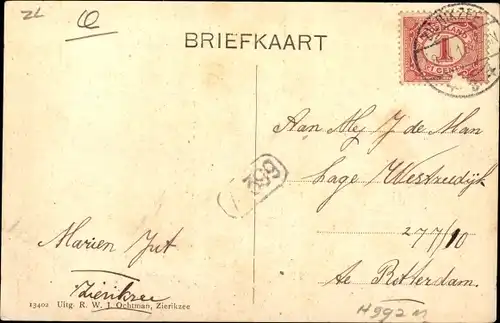 ZL
BRIEFKAART
ZIERIKZEE
1
CENT
Aan Mej J de Man
Lage Westzeedijk
277/10
te Rotterdam.
Marien Jut
Zierikzee
13402 Uitg. R. W. J. Ochtman, Zierikzee